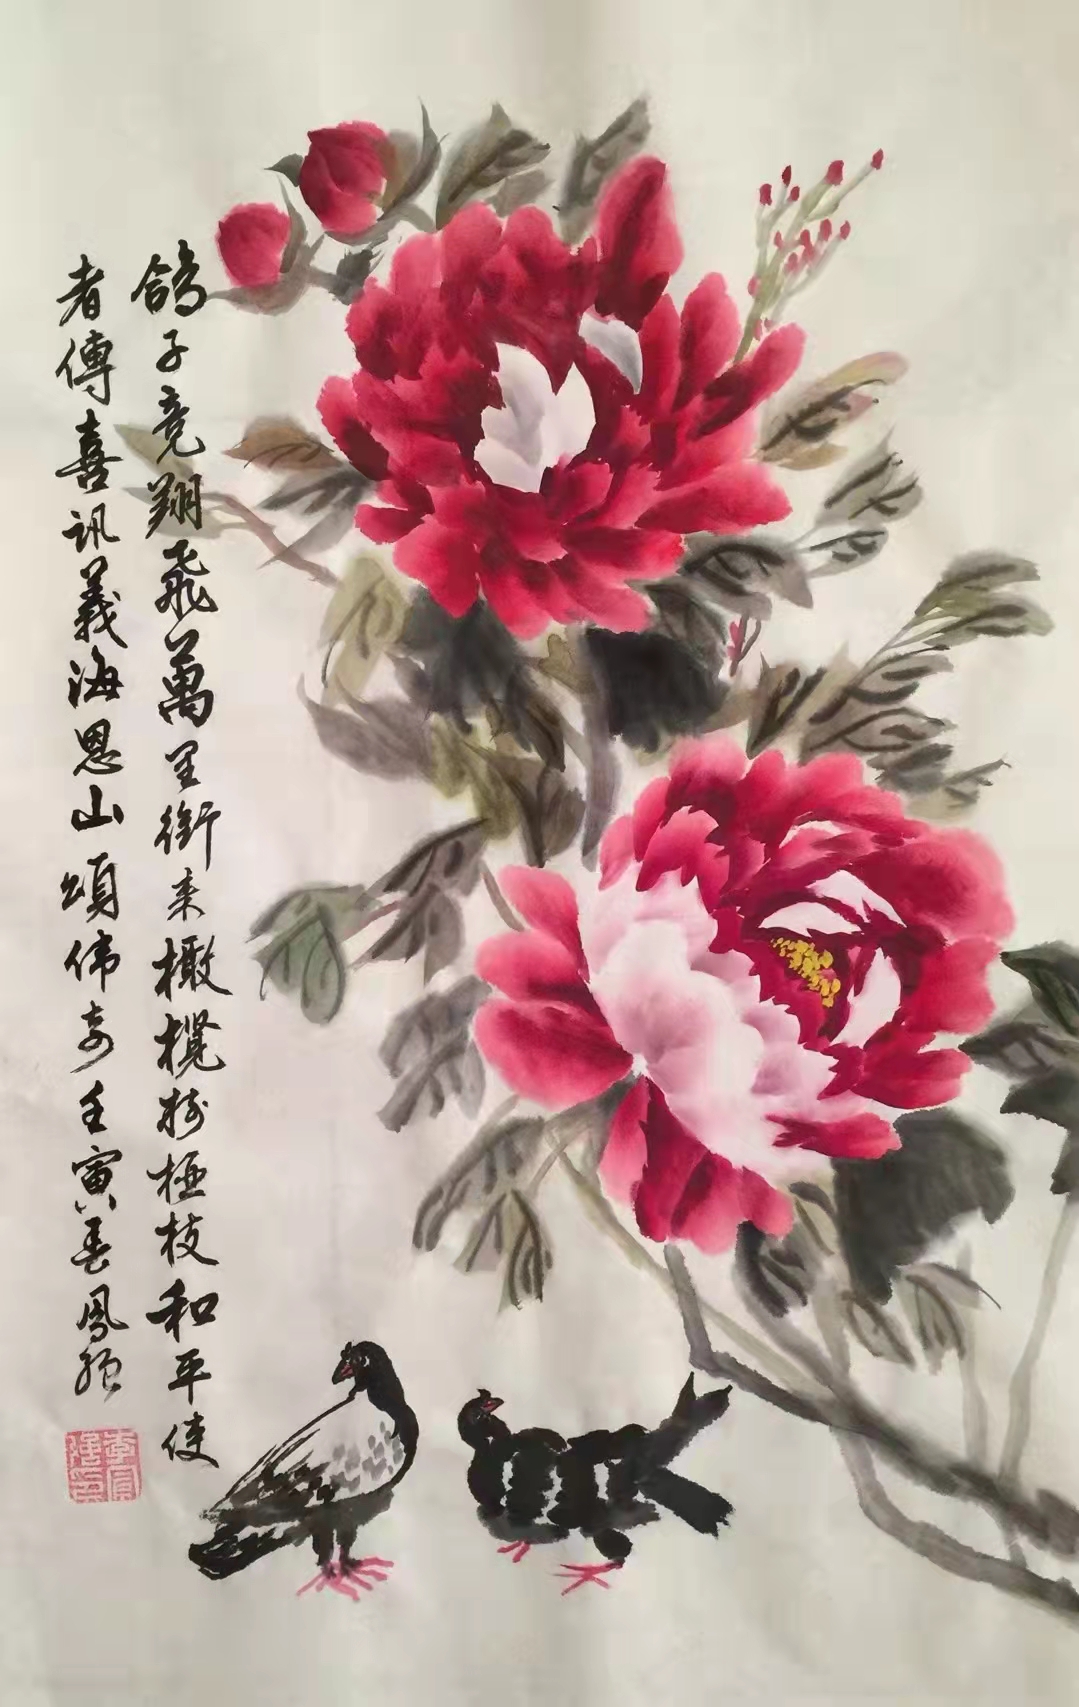 鴿子竞翔飛萬里銜来橄欖樹極枝和平使
者傳喜訊義海恩山頌偉奇壬寅春鳳強